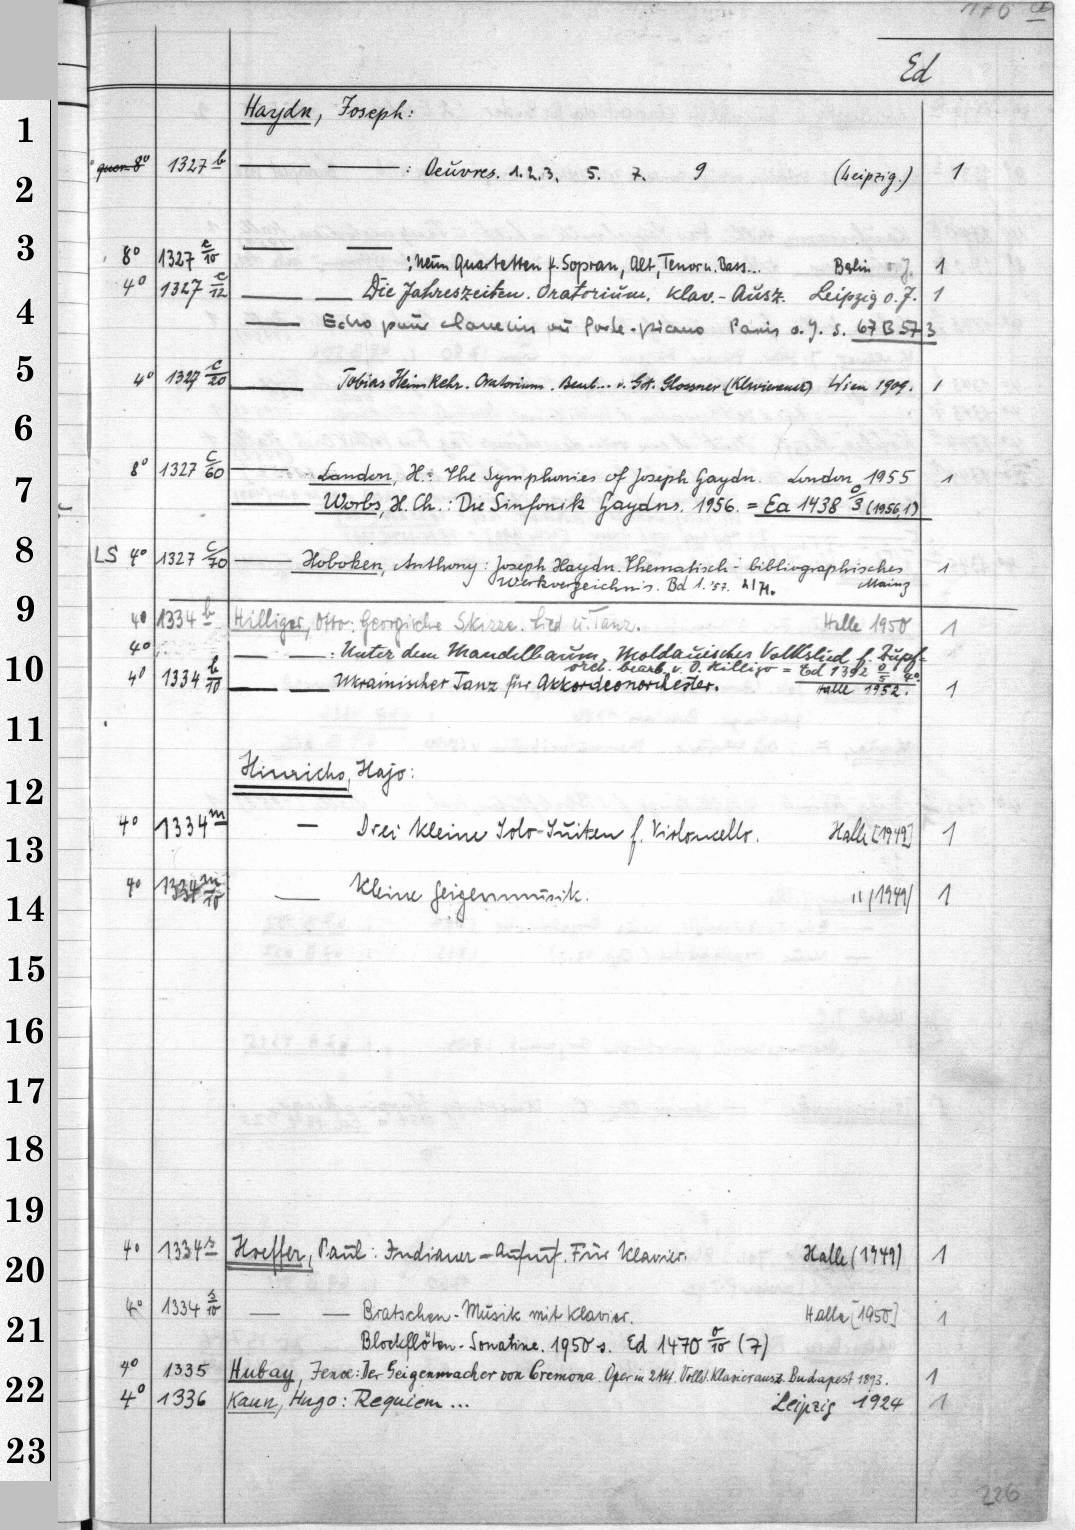 176 a
Ed
1
Haydn, Joseph:
2
quer 8° 1327 b — — : Oeuvres. 1. 2. 3. 5. 7. 9 (Leipzig.) 1
3
8° 1327 c/10 — — : Neun Quartetten f. Sopran, Alt, Tenor u. Bass... Berlin o. J. 1
4° 1327 c/12 — — Die Jahreszeiten. Oratorium. Klav.-Ausz. Leipzig o. J. 1
4
— Echo pour clavecin ou forte-piano Paris o. J. s. 67 B 573
5
4° 1327 c/20 — Tobias Heimkehr. Oratorium. Bearb... v. Glossner (Klavierausz) Wien 1909. 1
6
8° 1327 c/60 — Landon, H.: The Symphonies of Joseph Haydn. London 1955 1
7
— Worbs, H. Ch.: Die Sinfonik Haydns. 1956. = Ea 1438 o/3 (1956,1)
8
LS 4° 1327 c/70 — Hoboken, Anthony: Joseph Haydn. Thematisch-bibliographisches 1
Werkverzeichnis. Bd 1. '57. 2/71. Mainz
9
4° 1334 b Hilliger, Otto: Georgische Skizze. Lied u. Tanz. Halle 1950 1
4° — — : Unter dem Mandelbaum, Moldauisches Volkslied f. Zupf-
10
orch. bearb. v. O. Hilliger = Ed 1392 o/5 4°.
4° 1334 b/10 — — Ukrainischer Tanz für Akkordeonorchester. Halle 1952. 1
11
Hinrichs, Hajo:
12
4° 1334 m — Drei kleine Solo-Suiten f. Violoncello. Halle [1949] 1
13
4° 1334 m/10 — Kleine Geigenmusik. " (1949) 1
14
15
16
17
18
19
4° 1334 s Hoeffer, Paul: Indianer-Aufruf. Für Klavier. Halle (1949) 1
20
4° 1334 s/10 — — Bratschen-Musik mit Klavier. Halle [1950] 1
21
Blockflöten-Sonatine. 1950 s. Ed 1470 o/10 (7)
4° 1335 Hubay, Jenoe: Der Geigenmacher von Cremona. Oper in 2 Akt. Vollst. Klavierausz. Budapest 1893. 1
22
4° 1336 Kaun, Hugo: Requiem ... Leipzig 1924 1
23
226